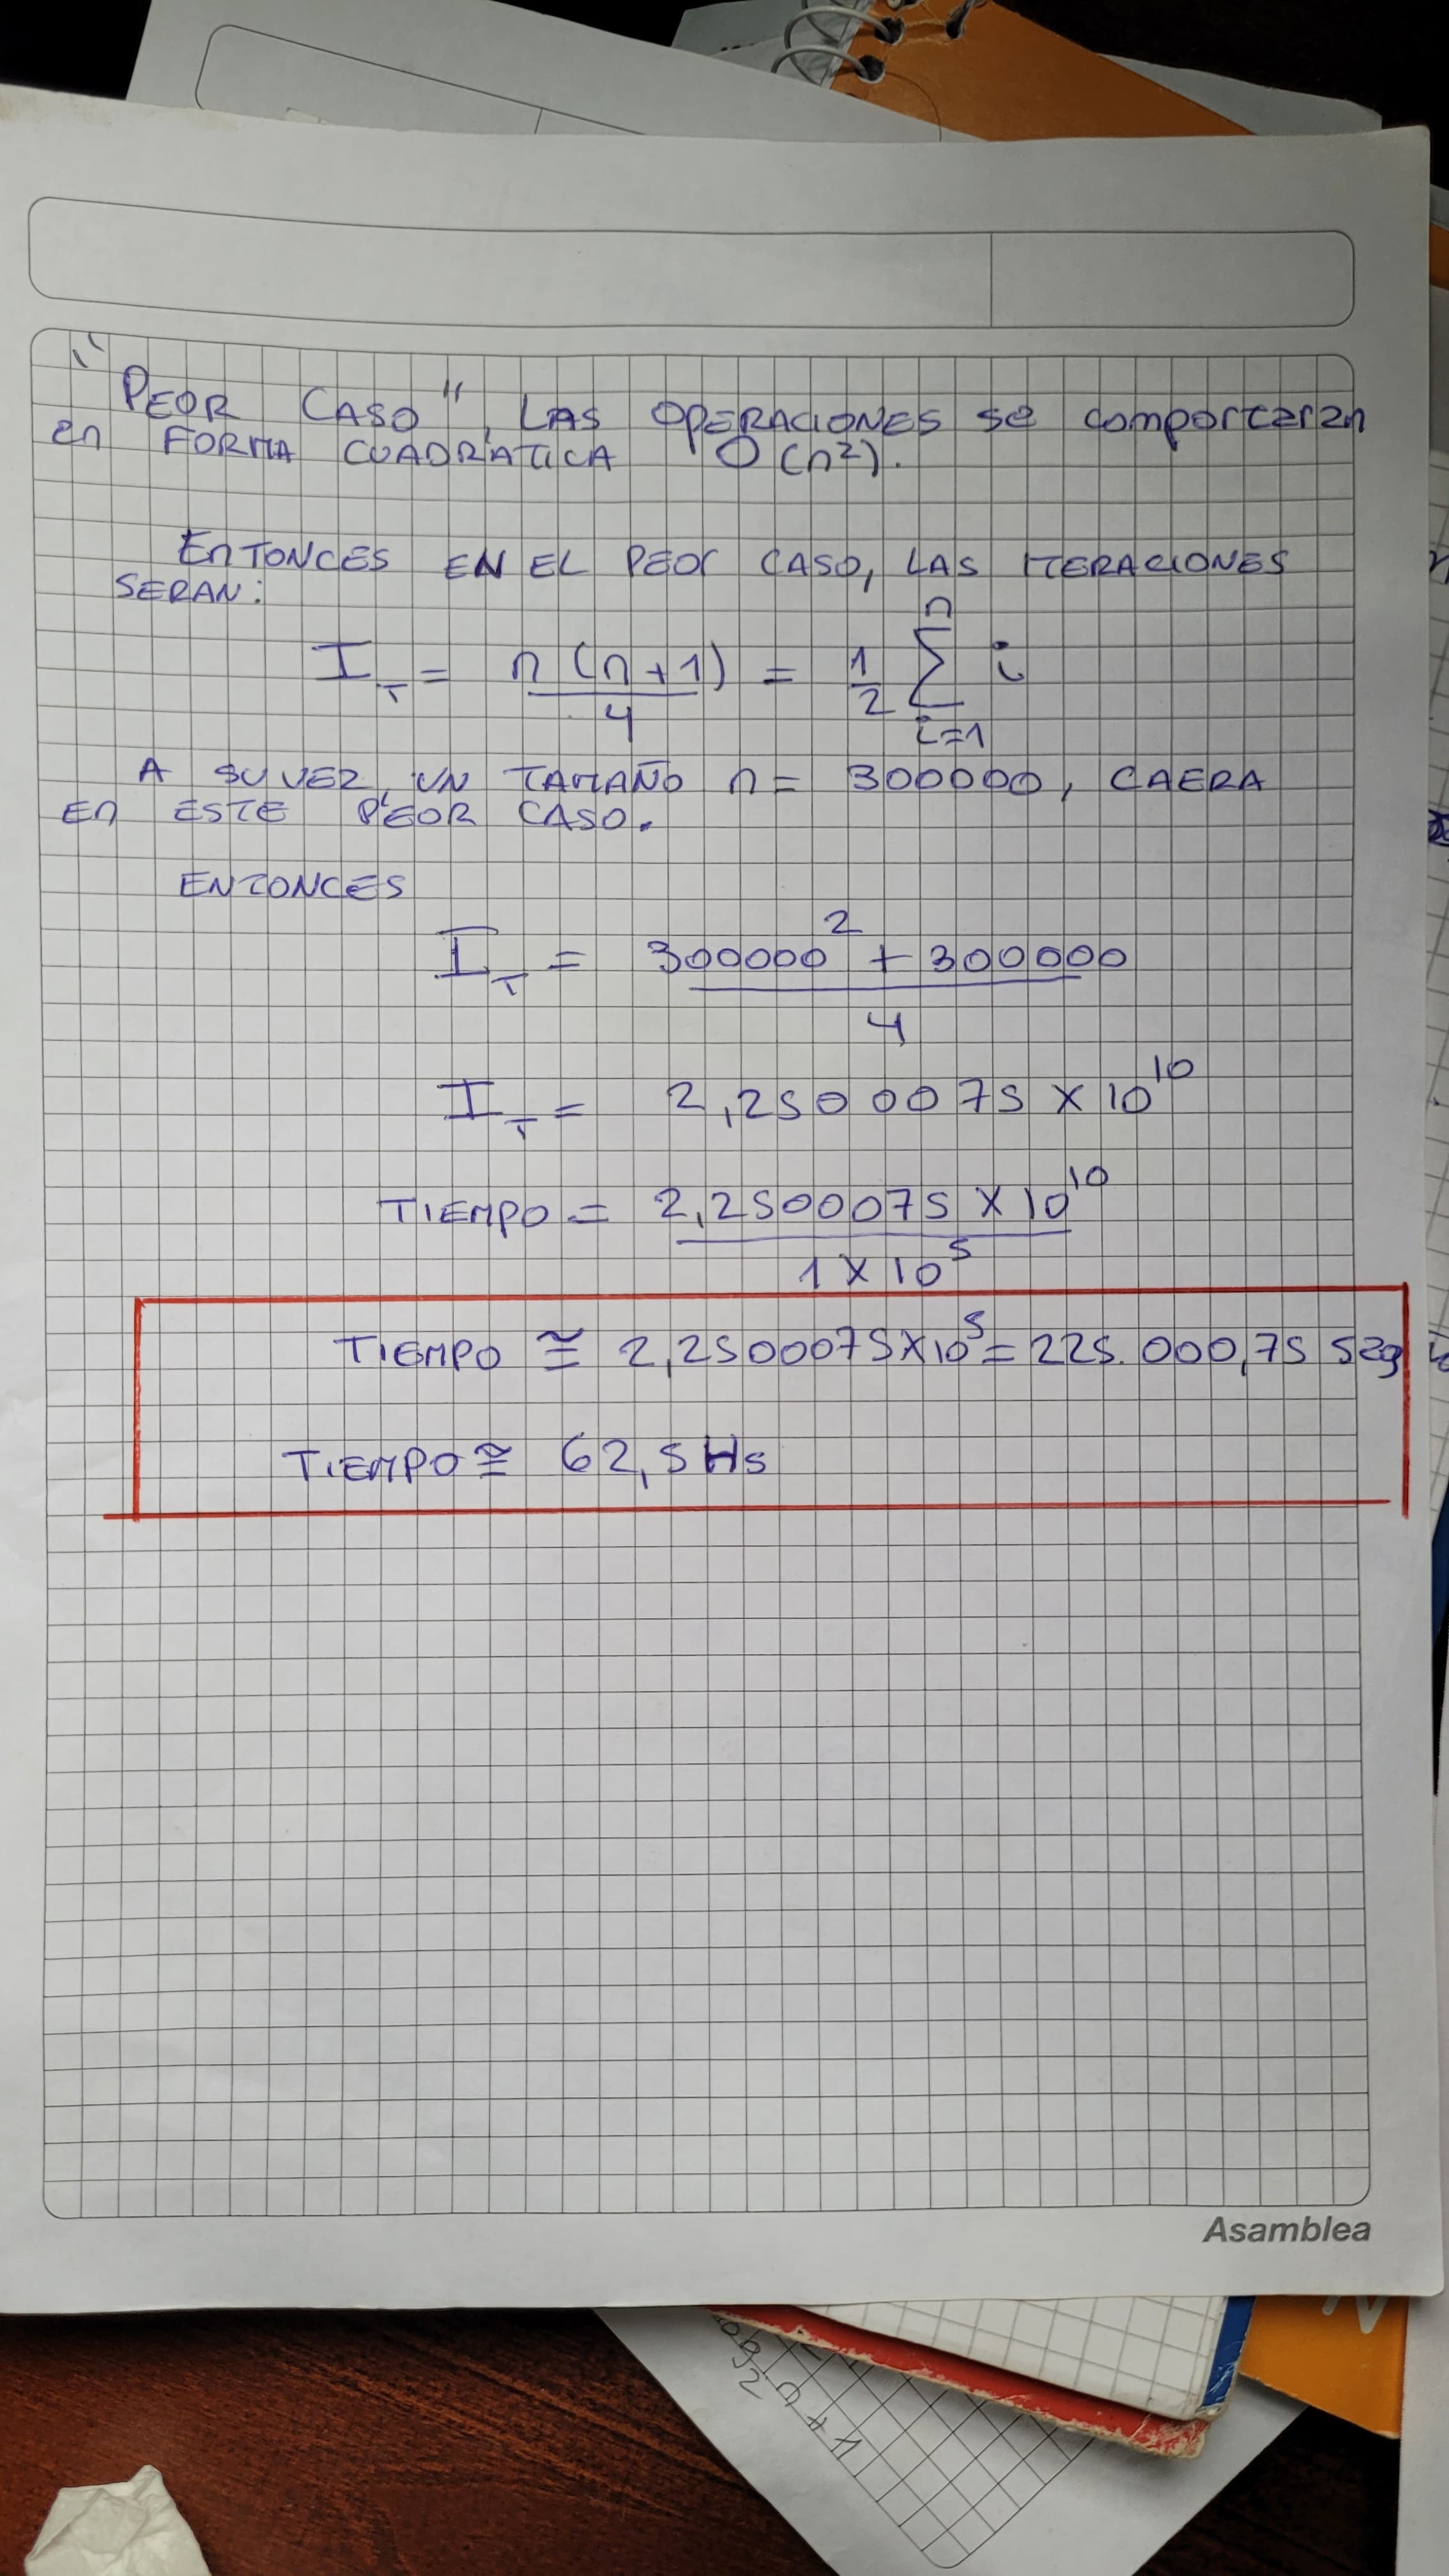 "PEOR CASO", LAS OPERACIONES se comportaran
en FORMA CUADRÁTICA O(n²).
ENTONCES EN EL PEOR CASO, LAS ITERACIONES
SERAN:
I_T = n(n+1)/4 = 1/2 ∑_{i=1}^{n} i
A SU VEZ, UN TAMAÑO n = 300000, CAERA
En ESTE PEOR CASO.
ENTONCES
I_T = (300000² + 300000)/4
I_T = 2,2500075 × 10^10
TIEMPO = 2,2500075 × 10^10 / 1 × 10^5
TIEMPO ≅ 2,2500075×10^5 = 225.000,75 seg
TIEMPO ≅ 62,5 Hs
Asamblea